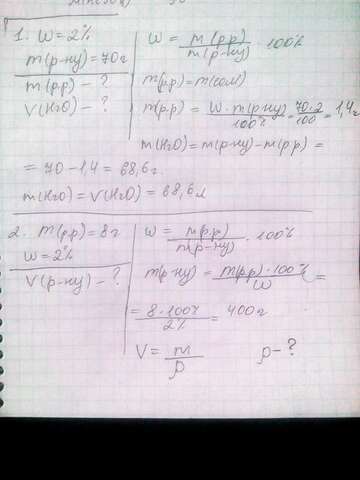 1. W = 2%
m(р-ну) = 70г
m(р.р) - ?
V(H2O) - ?
W = m(р.р) / m(р-ну) · 100%
m(р.р) = m(солі)
m(р.р) = W · m(р-ну) / 100% = 70 · 2 / 100 = 1,4г
m(H2O) = m(р-ну) - m(р.р) =
= 70 - 1,4 = 68,6г.
m(H2O) = V(H2O) = 68,6л
2. m(р.р) = 8г
W = 2%
V(р-ну) - ?
W = m(р.р) / m(р-ну) · 100%
m(р-ну) = m(р.р) · 100% / W =
= 8 · 100% / 2% = 400г
V = m / ρ ρ - ?